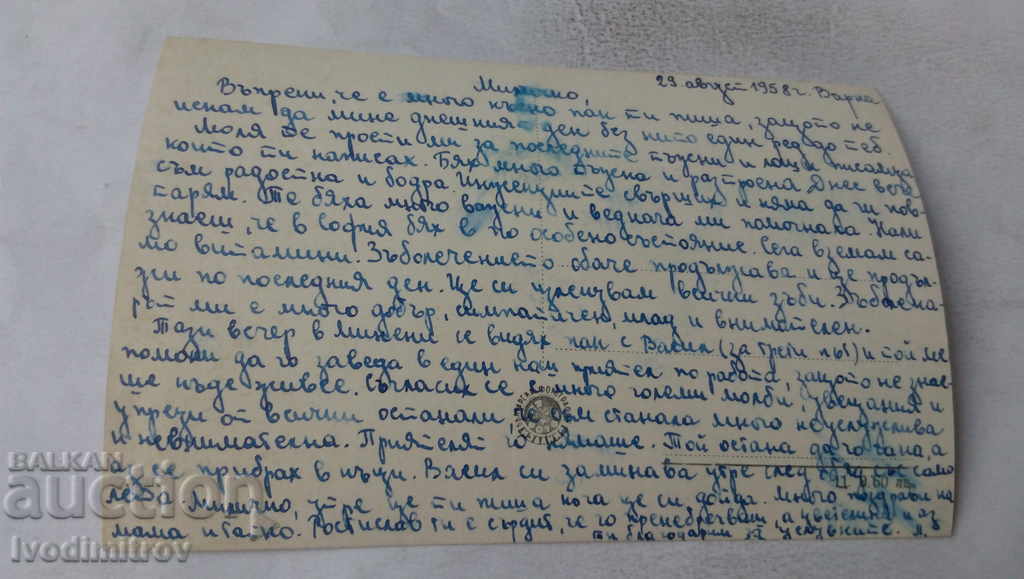 29 август 1958 г. Варна
Миличко,
Въпреки, че е много късно пак ти пиша, защото не
искам да мине днешният ден без нито един ред до теб.
Моля те прости ми за последните тъжни и лоши писалца
които ти написах. Бях много тъжна и разтроена. Днес вече
съм радостна и бодра. Инжекциите свърших и няма да ги пов-
тарям. Те бяха много важни и веднага ми помогнаха. Нали
знаеш, че в София бях в по особено състояние. Сега вземам са-
мо витамини. Зъболечението обаче продължава и ще продъл-
жи по последния ден. Ще си излекувам всички зъби. Зъболека-
рят ми е много добър, симпатичен, млад и внимателен.
Тази вечер в Милени се видях пак с Васил (за трети път) и той ме
помоли да го заведа в един наш приятел по работа, защото не знае-
ше къде живее. Съгласих се с много големи молби, увещания и
упреци от всички останали, че съм станала много неуслужлива
и невнимателна. Приятелят го нямаше. Той остана да го чака, а
аз се прибрах в къщи. Васил си заминава утре след обед със само
лета. Миличко, утре ще ти пиша кога ще си дойда. Много поздрави на
мама и татко. Ростислав ти е сърдит, че го пренебрегваш, а цветенцата и аз
ти благодарим за целувките. Л.
11 0 60
BALKAN
auction
Ivodimitrov